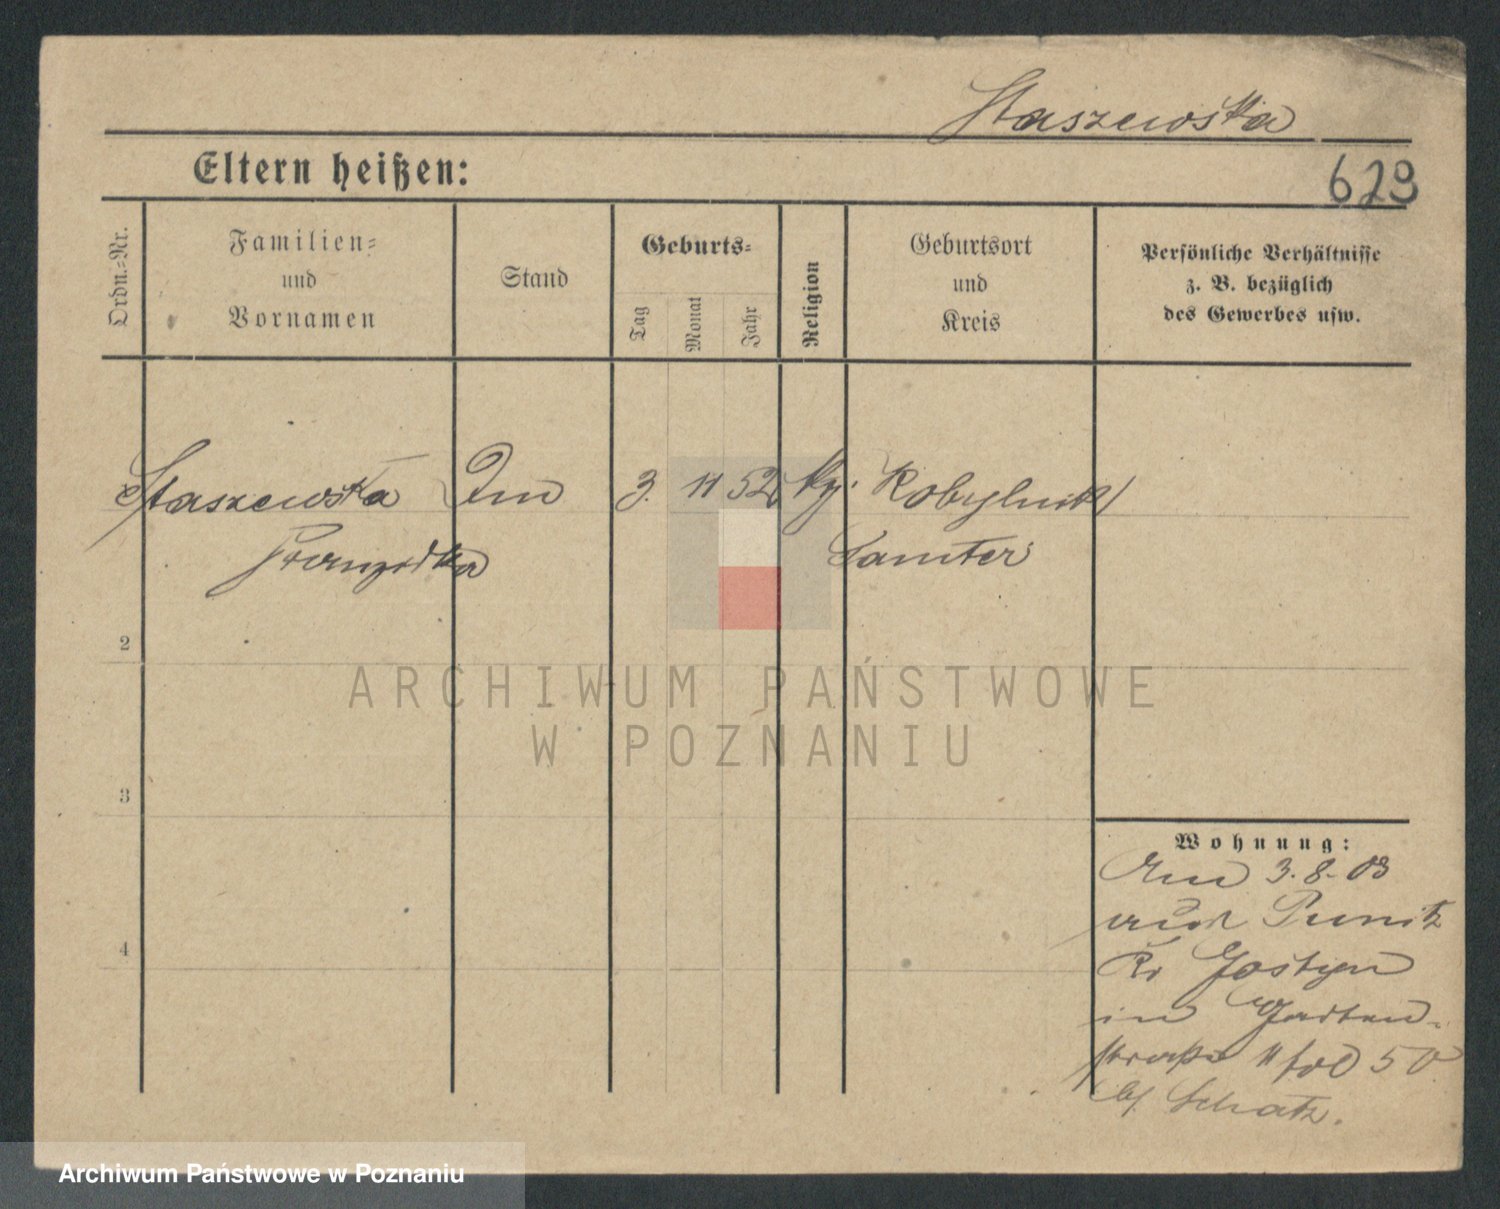 Staszewska
Eltern heißen:
629
Ordn.-Nr.
Familien-
und
Vornamen
Stand
Geburts-
Tag
Monat
Jahr
Religion
Geburtsort
und
Kreis
Persönliche Verhältnisse
z. B. bezüglich
des Gewerbes usw.
Staszewska
3. 11 52
Samter
2
3
4
Wohnung:
3.8.03
Punitz
Kr Gostyn
in Garten-
straße 11 fol 50
Schatz.
ARCHIWUM PAŃSTWOWE
W POZNANIU
Archiwum Państwowe w Poznaniu